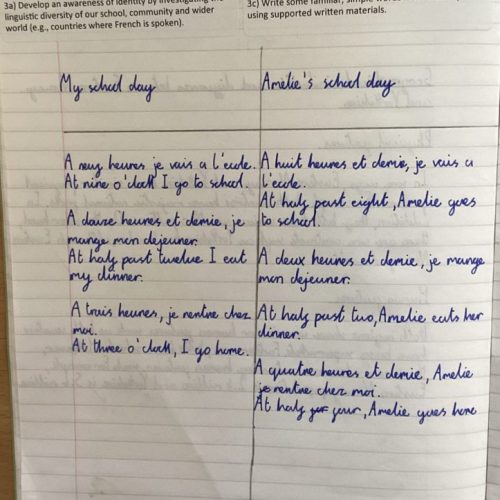 3a) Develop an awareness of identity by investigating the
linguistic diversity of our school, community and wider
world (e.g., countries where French is spoken).
3c) Write some familiar, simple
using supported written materials.
My school day
A neuf heures je vais a l'ecole.
At nine o'clock I go to school.
A douze heures et demie, je
mange mon dejeuner.
At half past twelve I eat
my dinner.
A trois heures, je rentre chez
moi.
At three o'clock, I go home.
Amelie's school day
A huit heures et demie, je vais a
l'ecole.
At half past eight, Amelie goes
to school.
A deux heures et demie, je mange
mon dejeuner.
At half past two, Amelie eats her
dinner.
A quatre heures et demie, Amelie
je rentre chez moi.
At half four, Amelie goes home